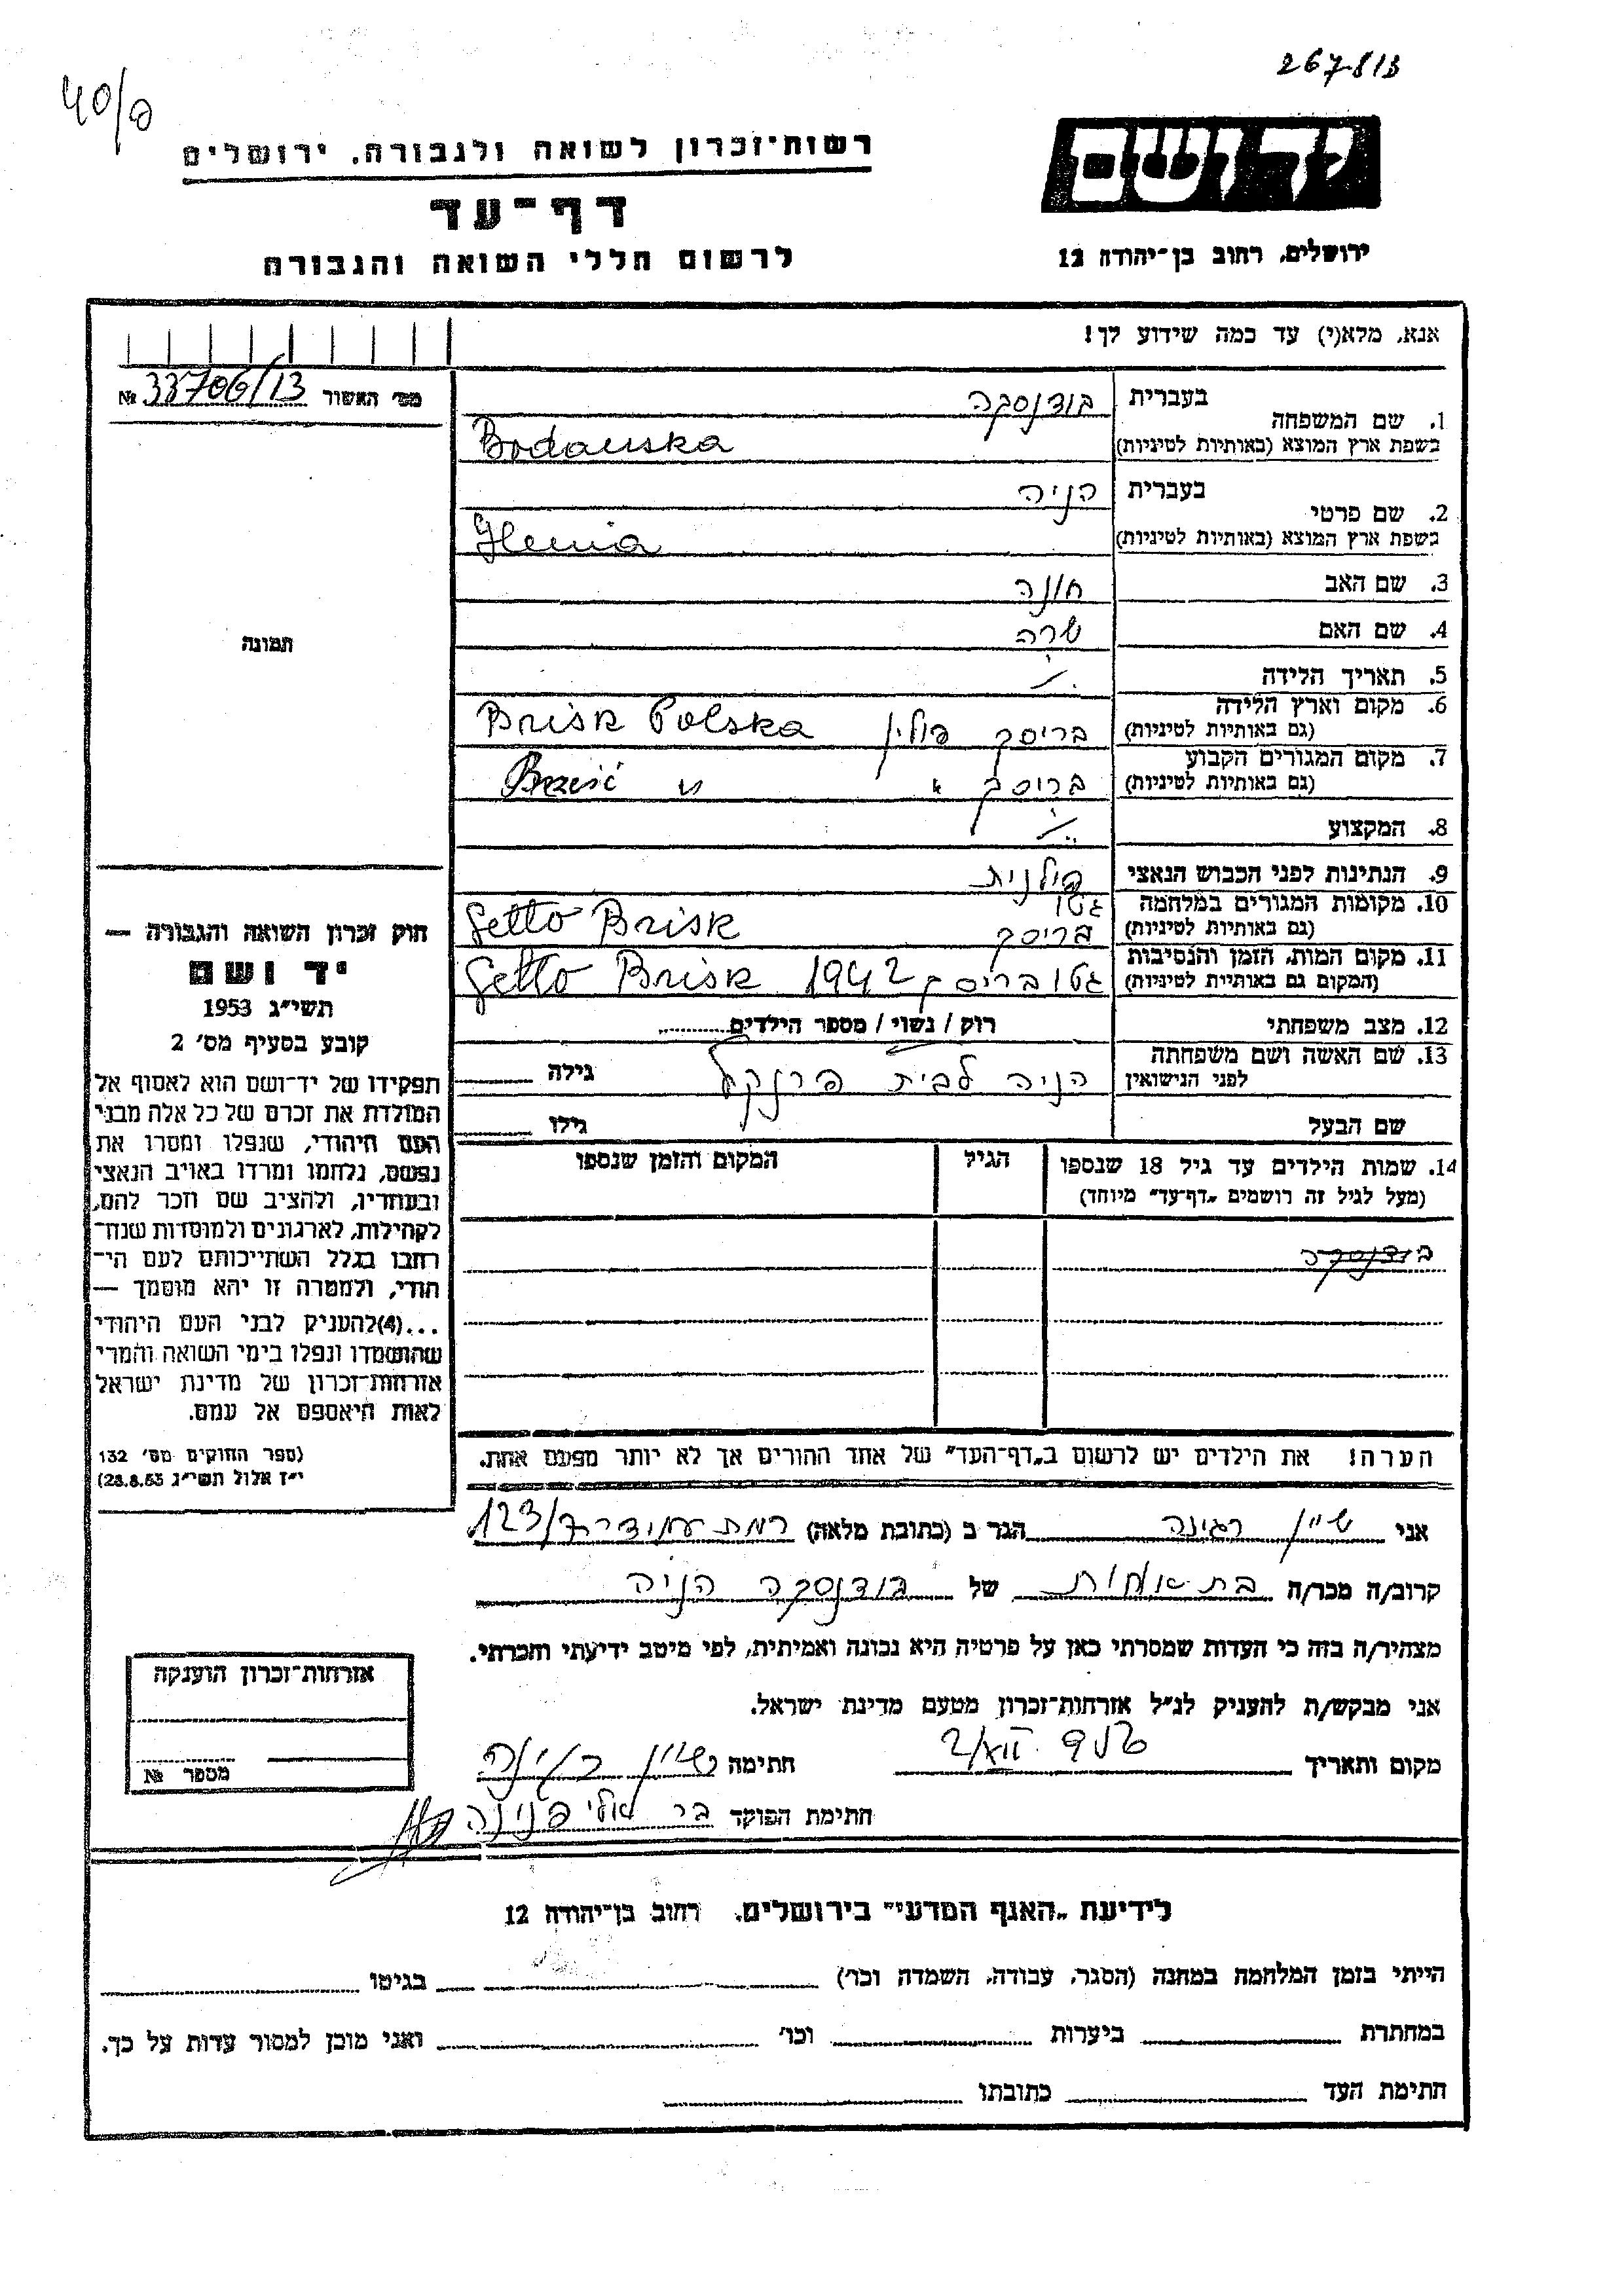 267813
40/פ
רשות־זכרון לשואה ולגבורה, ירושלים
ידושם
דף־עד
לרשום חללי השואה והגבורה
ירושלים, רחוב בן־יהודה 12
אנא, מלא(י) עד כמה שידוע לך!
מס׳ האשור 33706/13 №
1. שם המשפחה
בעברית בודנסקה
בשפת ארץ המוצא (באותיות לטיניות) Bodanska
2. שם פרטי
בעברית הניה
בשפת ארץ המוצא (באותיות לטיניות) Henia
3. שם האב חונה
4. שם האם שרה
5. תאריך הלידה
6. מקום וארץ הלידה
(גם באותיות לטיניות) בריסק פולין Brisk Polska
7. מקום המגורים הקבוע
(גם באותיות לטיניות) בריסק " Brześć "
8. המקצוע
9. הנתינות לפני הכבוש הנאצי פולנית
10. מקומות המגורים במלחמה גטו
(גם באותיות לטיניות) בריסק Getto Brisk
11. מקום המות, הזמן והנסיבות
(המקום גם באותיות לטיניות) גטו בריסק 1942 Getto Brisk
12. מצב משפחתי רוק / נשוי / מספר הילדים
13. שם האשה ושם משפחתה
לפני הנישואין הניה לבית פרנקל גילה
שם הבעל גילו
14. שמות הילדים עד גיל 18 שנספו הגיל המקום והזמן שנספו
(מעל לגיל זה רושמים „דף־עד" מיוחד)
בודנסקה
הערה! את הילדים יש לרשום ב„דף־העד" של אחד ההורים אך לא יותר מפעם אחת.
תמונה
חוק זכרון השואה והגבורה —
יד ושם
תשי״ג 1953
קובע בסעיף מס׳ 2
תפקידו של יד־ושם הוא לאסוף אל
המולדת את זכרם של כל אלה מבני
העם היהודי, שנפלו ומסרו את
נפשם, נלחמו ומרדו באויב הנאצי
ובעוזריו, ולהציב שם וזכר להם,
לקהילות, לארגונים ולמוסדות שנח־
רבו בגלל השתייכותם לעם הי־
הודי, ולמטרה זו יהא מוסמך —
...(4)להעניק לבני העם היהודי
שהושמדו ונפלו בימי השואה והמרי
אזרחות־זכרון של מדינת ישראל
לאות היאספם אל עמם.
(ספר החוקים מס׳ 132
י״ז אלול תשי״ג 28.8.53)
אני שיין רגינה הגר ב (כתובת מלאה) רמת עמידר 123/7
קרוב/ה מכר/ה בת אחות של בודנסקה הניה
מצהיר/ה בזה כי העדות שמסרתי כאן על פרטיה היא נכונה ואמיתית, לפי מיטב ידיעתי והכרתי.
אני מבקש/ת להעניק לנ״ל אזרחות־זכרון מטעם מדינת ישראל.
מקום ותאריך חתימה שיין רגינה
חתימת הפוקד בר פנינה
אזרחות־זכרון הוענקה
מספר №
לידיעת „האגף המדעי" בירושלים, רחוב בן־יהודה 12
הייתי בזמן המלחמה במחנה (הסגר, עבודה, השמדה וכו׳) בגיטו
במחתרת ביערות וכו׳ ואני מוכן למסור עדות על כך.
חתימת העד כתובתו